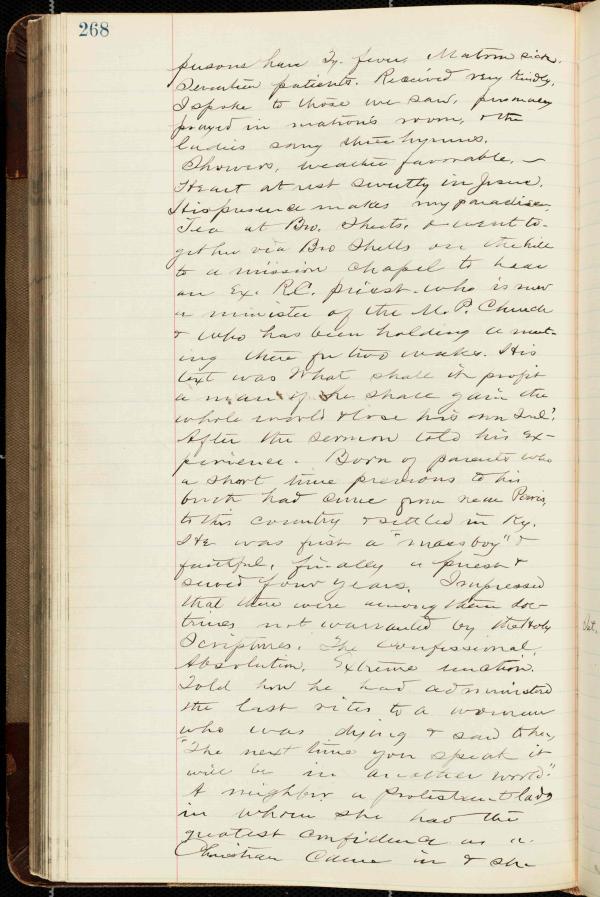 268
persons have Ty. fever, Matron sick.
Seventeen patients. Received very kindly.
I spoke to those we saw,
prayed in matron's room, & the
ladies sang three hymns.
Showers, weather favorable. —
Heart at rest sweetly in Jesus.
His presence makes my paradise.
Tea at Bro. Sheets, & went to-
gether via Bro Shells on the hill
to a mission chapel to hear
an Ex. R.C. priest. who is now
a minister of the M. P. Church
& who has been holding a meet-
ing there for two weeks. His
text was What shall it profit
a man if he shall gain the
whole world & lose his own soul?
After the sermon told his ex-
perience. Born of parents who
a short time previous to his
birth had come from near Paris,
to this country & settled in Ky.
He was first a "mass boy" &
faithful, finally a priest &
served four years. Impressed
that there were among them doc-
trines not warranted by the Holy
Scriptures. The confessional,
Absolution. Extreme unction.
Told how he had administered
the last rites to a woman
who was dying & said to her,
"The next time you speak it
will be in another world."
A neighbor a protestant lady
in whom she had the
greatest confidence as a
Christian came in & she